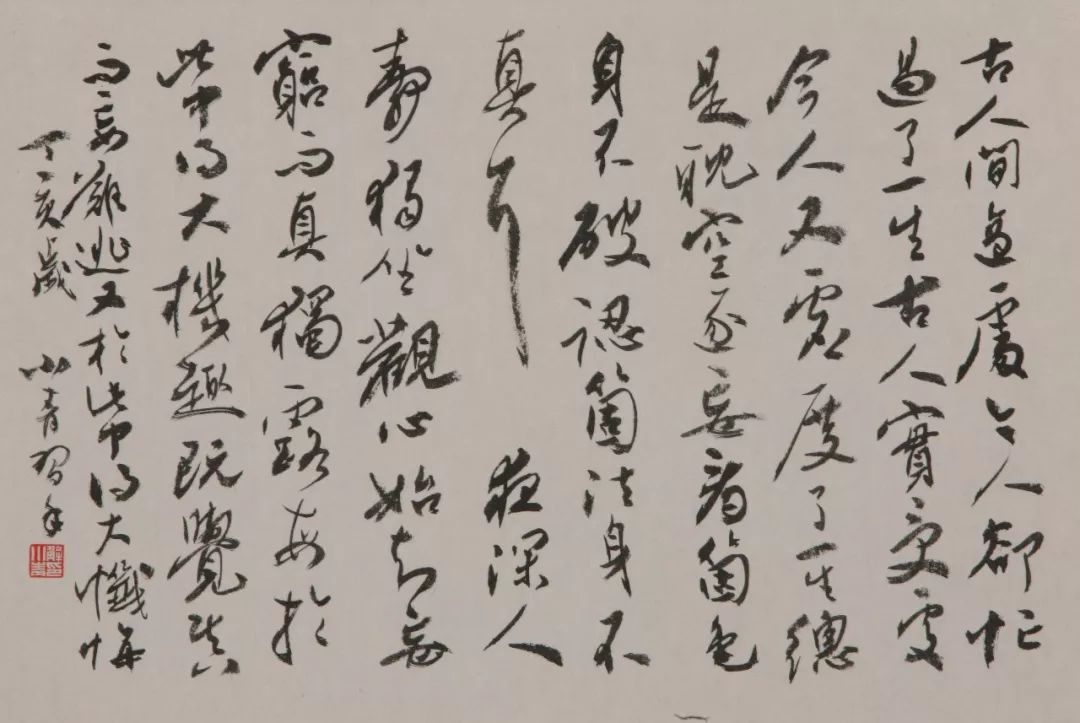 古人閒適處今人卻忙
過了一生古人實受處
今人又虛度了一生總
是耽空逐妄看箇色
身不破認箇法身不
真耳 夜深人
静獨坐觀心始知妄
窮而真獨露每於
此中得大機趣既覺真
而妄難逃又於此中得大懺悔
丁亥歲 小青習